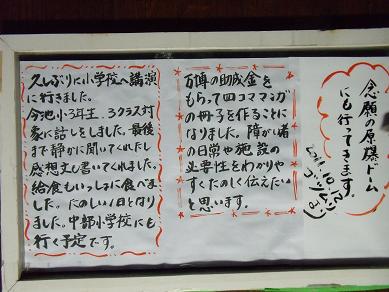 久しぶりに小学校へ講演
に行きました。
今池小3年生、3クラス対
象に話しをしました。最後
まで静かに聞いてくれたし
感想文も書いてくれました。
給食もいっしょに食べま
した。たのしい1日となり
ました。中部小学校にも
行く予定です。
万博の助成金を
もらって四コママンガ
の冊子を作ることに
なりました。障がい者
の日常や施設の
必要性をわかりや
すくたのしく伝えたい
と思います。
念願の原爆ドーム
にも行ってきます。
2011.10.12